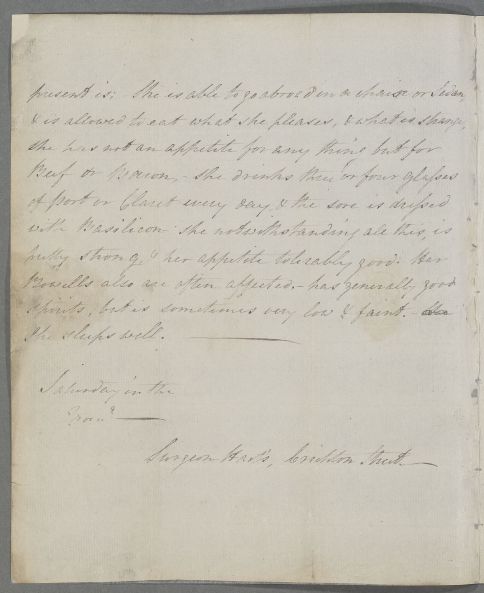 present is: She is able to go abroad in a chaise or Sedan
& is allowed to eat what she pleases, & what is strange,
she has not an appetite for any thing but for
Beef or Bacon, - She drinks three or four glasses
of Port or Claret every day, & the sore is dressed
with Basilicon she notwithstanding all this, is
pretty strong, & her appetite tolerably good. Her
Bowells also are often affected. - has generally good
Spirits, but is sometimes very low & faint. -
She sleeps well.
Saturday in the
Surgeon Hart's, Crichton Street